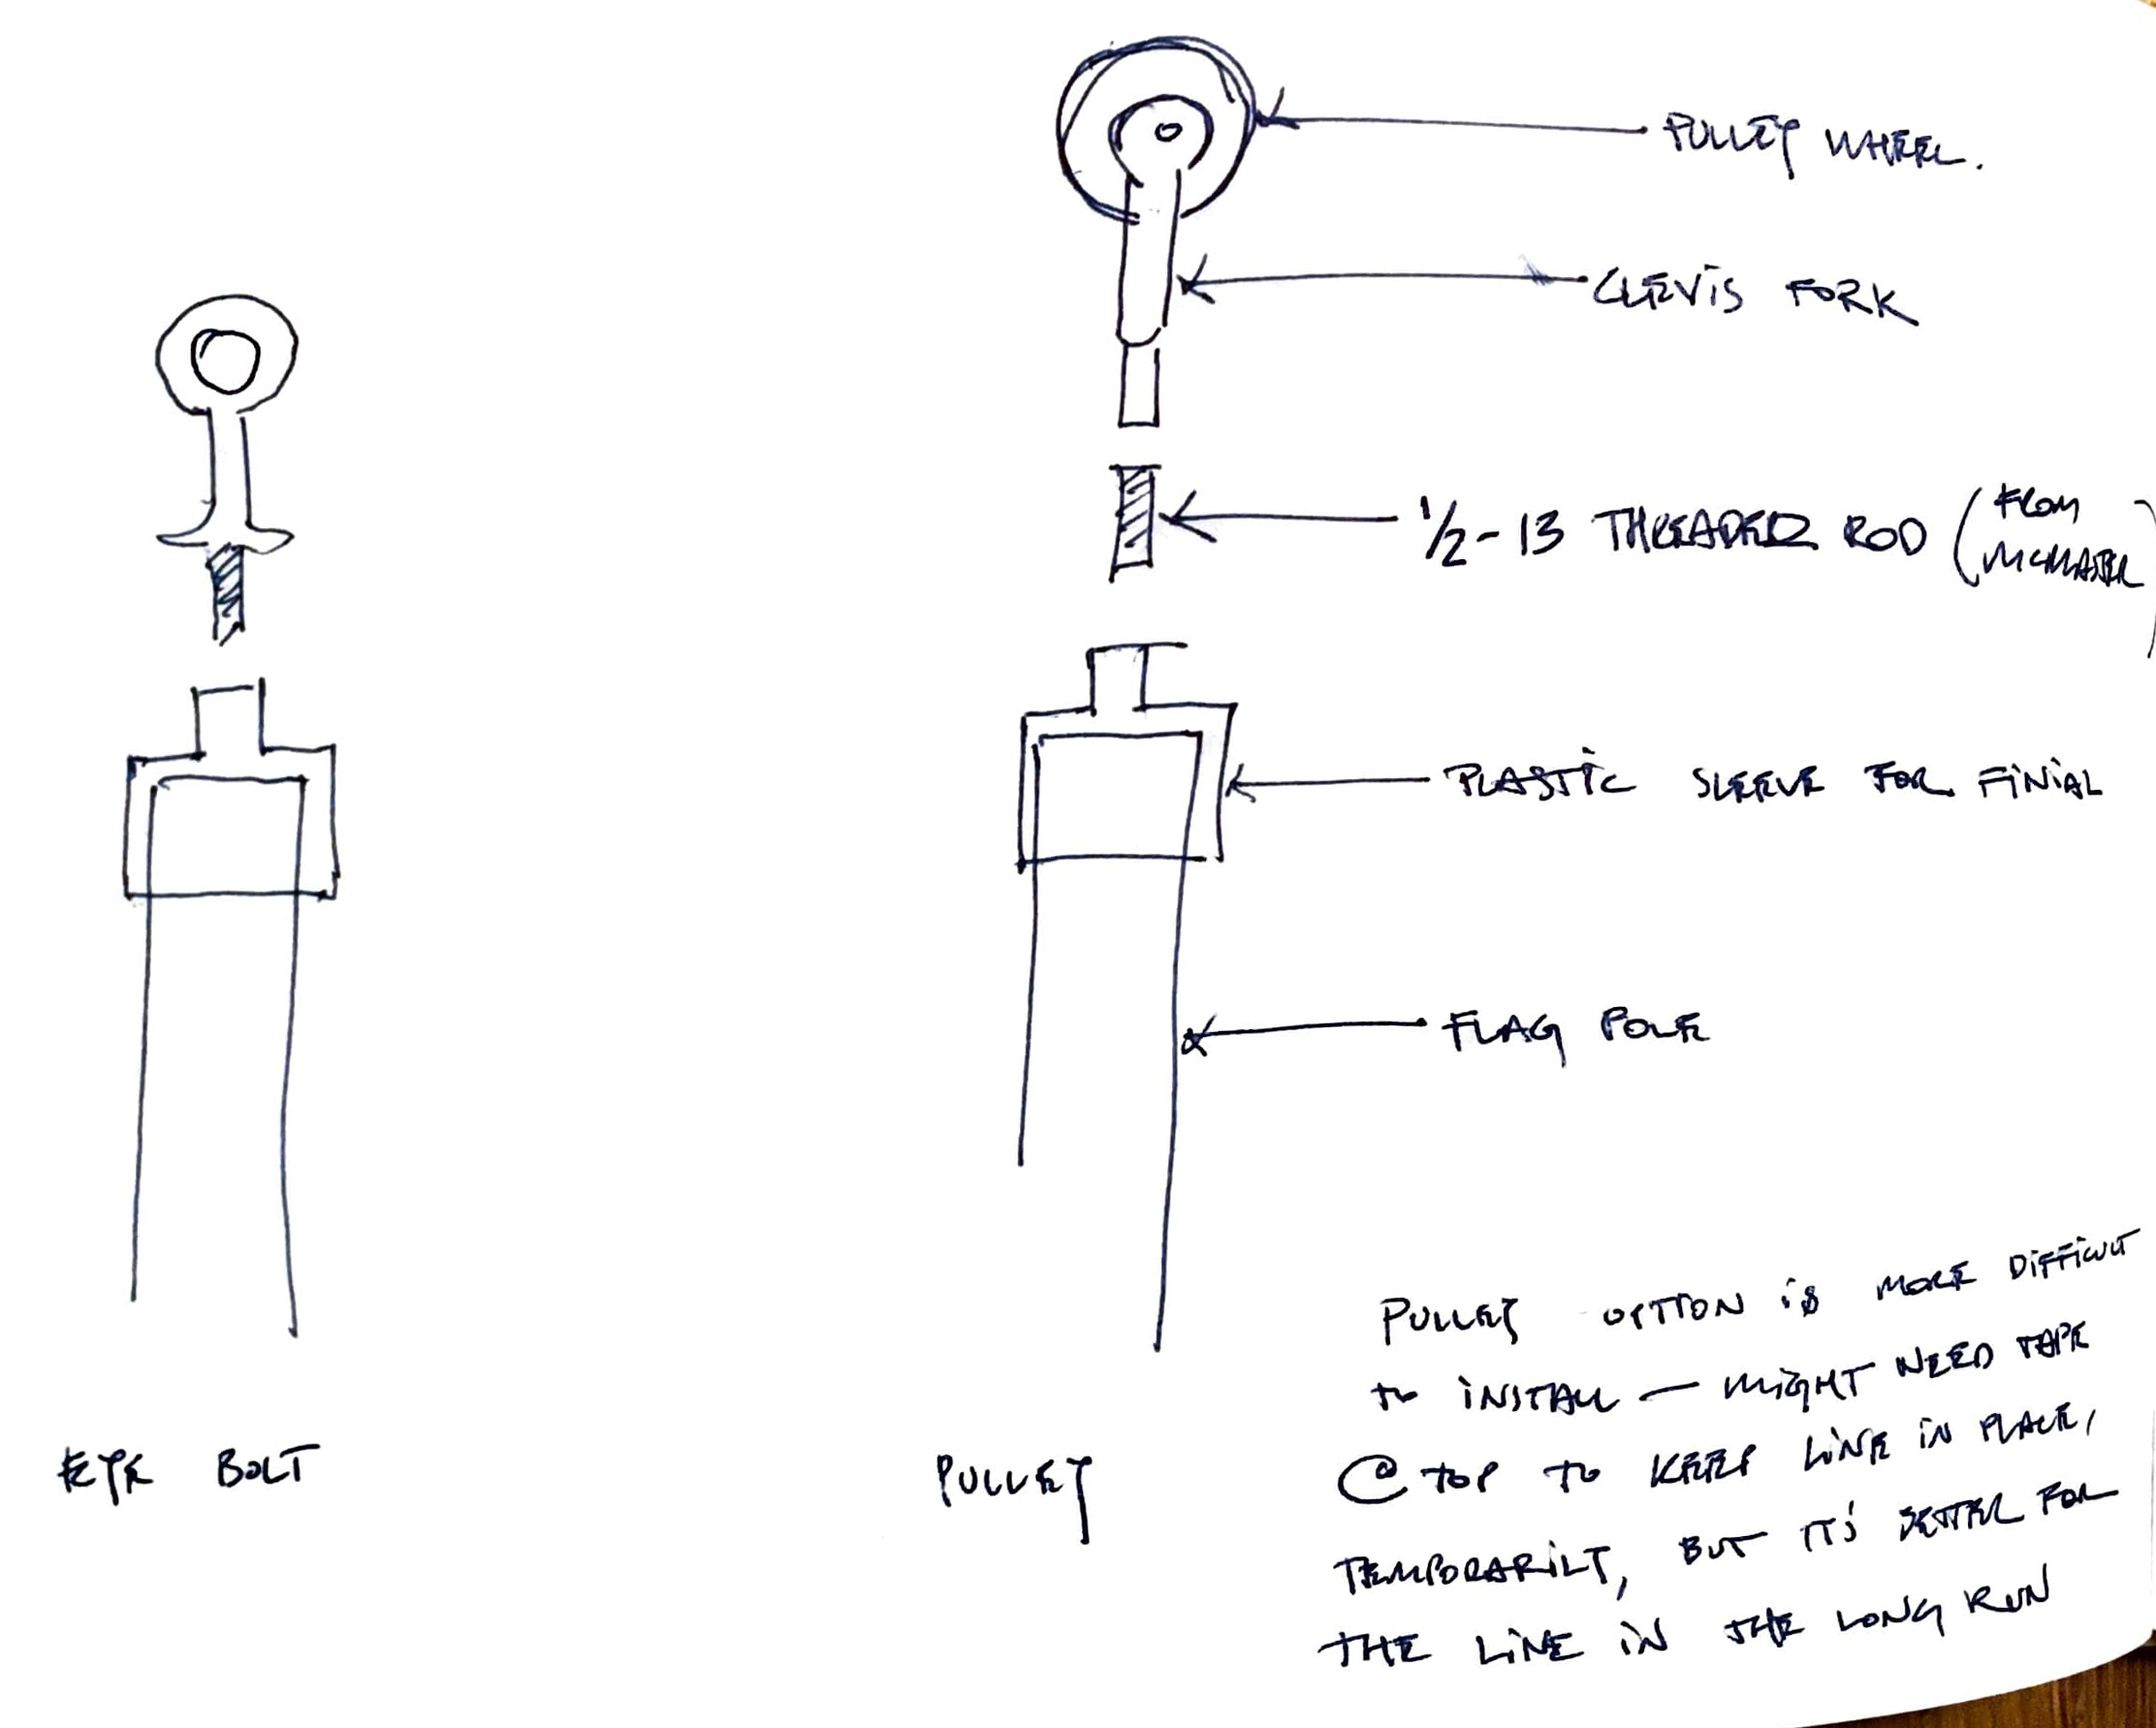 PULLEY WHEEL.
CLEVIS FORK
1/2-13 THREADED ROD (FROM
MCMASTER)
PLASTIC SLEEVE FOR FINIAL
FLAG POLE
EYE BOLT
PULLEY
PULLEY OPTION IS MORE DIFFICULT
TO INSTALL — MIGHT NEED TAPE
@ TOP TO KEEP LINE IN PLACE,
TEMPORARILY, BUT IT'S BETTER FOR
THE LINE IN THE LONG RUN